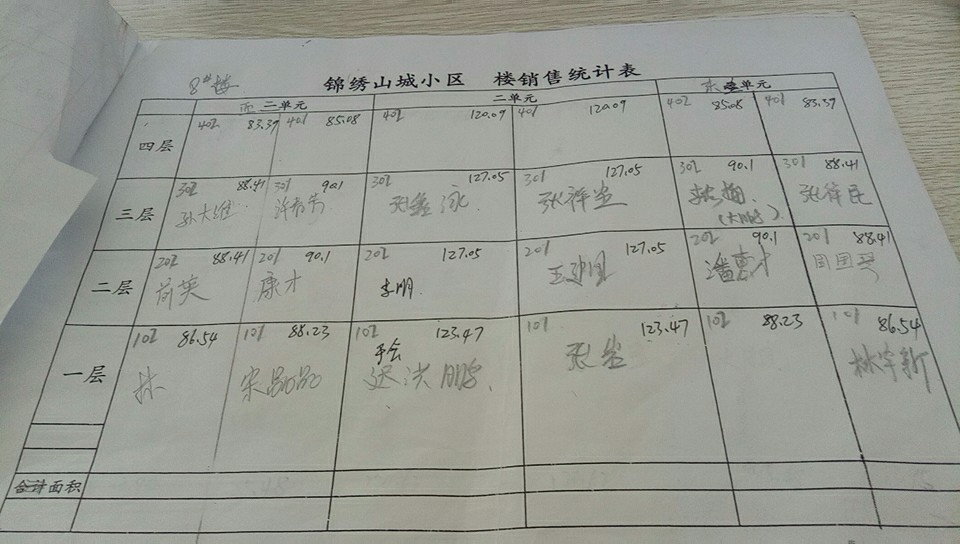 8#楼 锦绣山城小区 楼销售统计表
西二单元 二单元 东单元
四层 402 83.39 401 85.08 402 120.09 401 120.09 402 85.08 401 83.39
三层 302 88.41 301 90.1 302 127.05 301 127.05 302 90.1 301 88.41
孙大维 张鑫泳 张祥
二层 202 88.41 201 90.1 202 127.05 201 127.05 202 90.1 201 88.41
苘英 康才 李明 潘惠才
一层 102 86.54 101 88.23 102 123.47 101 123.47 102 88.23 101 86.54
林 宋晶晶 迟洪鹏 张岩 林宇新
合计面积